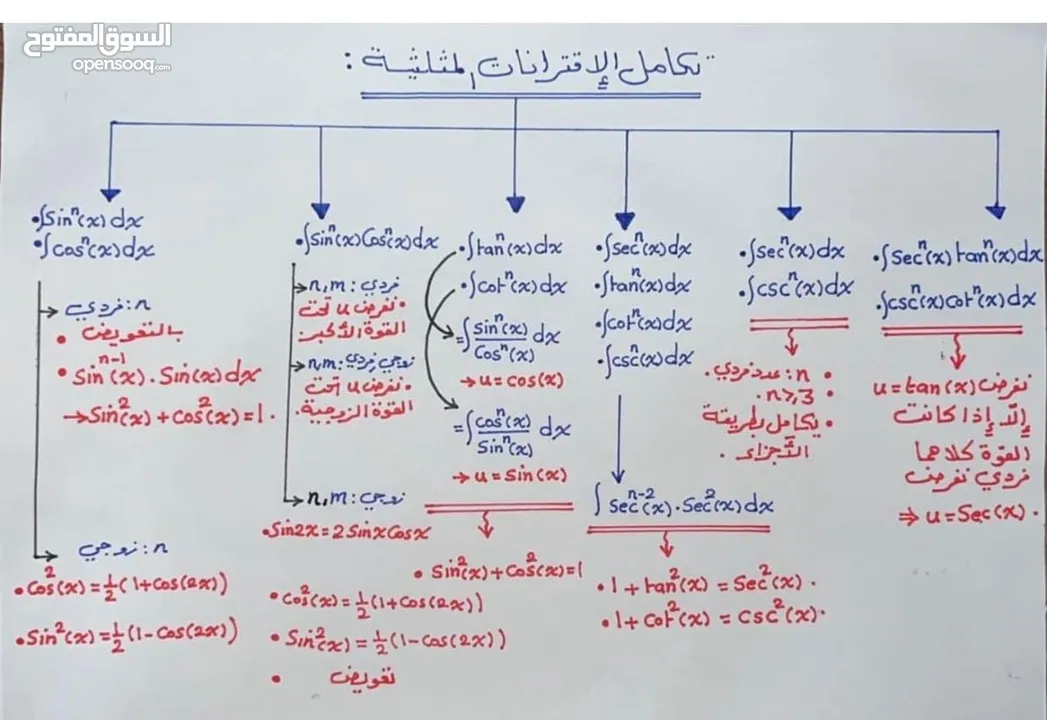 السوق المفتوح
opensooq.com
تكامل الإقترانات المثلثية :
• ∫Sinⁿ(x) dx
• ∫Cosⁿ(x) dx
n : فردي
• بالتعويض
• Sinⁿ⁻¹(x) . Sin(x) dx
→ Sin²(x) + Cos²(x) = 1 .
n : زوجي
• Cos²(x) = ½(1 + Cos(2x))
• Sin²(x) = ½(1 - Cos(2x))
• ∫Sinⁿ(x) Cosⁿ(x) dx
n,m : فردي
• نفرض u تحت
القوة الأكبر
n,m : زوجي فردي
• نفرض u تحت
القوة الزوجية .
n,m : زوجي
• Sin2x = 2 Sinx Cosx
• Cos²(x) = ½(1 + Cos(2x))
• Sin²(x) = ½(1 - Cos(2x))
• تعويض
• ∫tanⁿ(x) dx
• ∫cotⁿ(x) dx
= ∫ Sinⁿ(x) / Cosⁿ(x) dx
→ u = Cos(x)
= ∫ Cosⁿ(x) / Sinⁿ(x) dx
→ u = Sin(x)
• Sin²(x) + Cos²(x) = 1
• ∫Secⁿ(x) dx
• ∫tanⁿ(x) dx
• ∫cotⁿ(x) dx
• ∫cscⁿ(x) dx
∫ Secⁿ⁻²(x) . Sec²(x) dx
• 1 + tan²(x) = Sec²(x) .
• 1 + Cot²(x) = CSC²(x) .
• ∫Secⁿ(x) dx
• ∫CSCⁿ(x) dx
• n : عدد فردي .
• n ≥ 3 .
• يكامل بطريقة
الأجزاء .
• ∫Secⁿ(x) tanⁿ(x) dx
• ∫CSCⁿ(x) cotⁿ(x) dx
نفرض u = tan(x)
إلا إذا كانت
القوة كلاهما
فردي نفرض
⇒ u = Sec(x) .